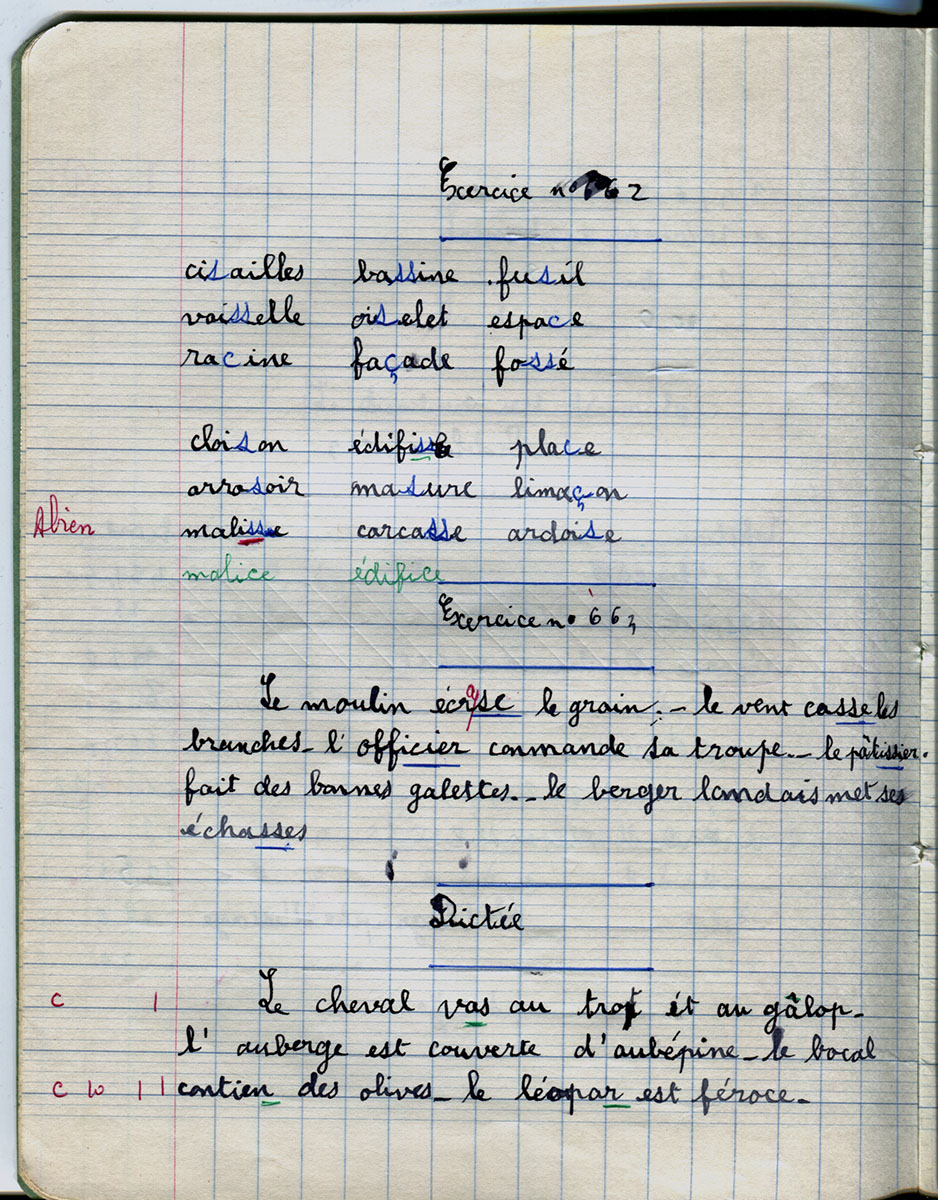 Exercice no 662
cisailles bassine fusil
vaisselle oiselet espace
racine façade fossé
cloison édifisse place
arrosoir masure limaçon
A bien malisse carcasse ardoise
malice édifice
Exercice no 663
Le moulin écrase le grain. - le vent casse les
branches - l'officier commande sa troupe. - le pâtissier
fait des bonnes galettes. - le berger landais met ses
échasses
Dictée
C 1 Le cheval vas au trot ét au gâlop -
l'auberge est couverte d'aubépine - le bocal
C 10 11 contien des olives - le léopar est féroce -